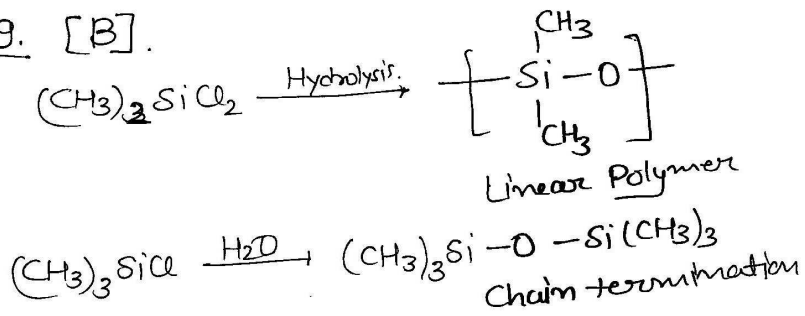 9. [B].
(CH3)2 SiCl2 Hydrolysis. [ -Si-O- ] CH3 CH3
Linear Polymer
(CH3)3SiCl H2O (CH3)3Si-O-Si(CH3)3
Chain termination